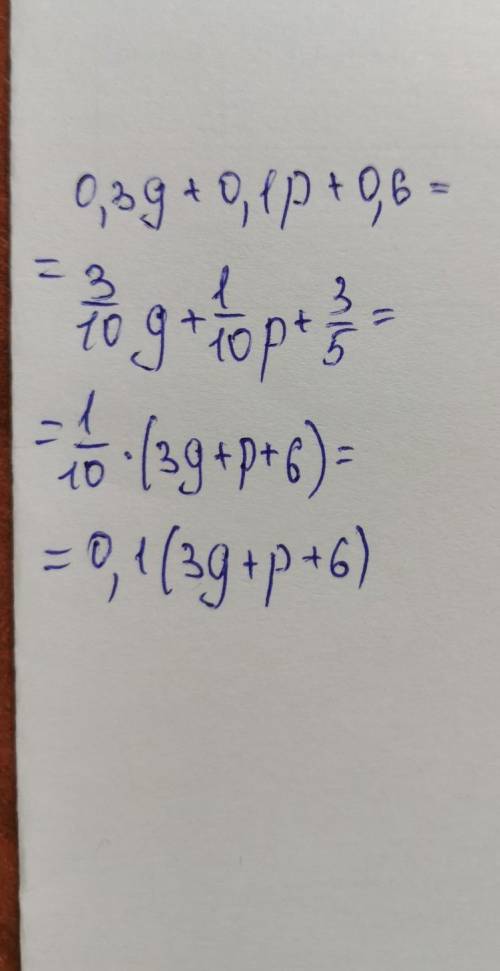 0,3g + 0,1p + 0,6 =
= 3/10 g + 1/10 p + 3/5 =
= 1/10 · (3g + p + 6) =
= 0,1 (3g + p + 6)